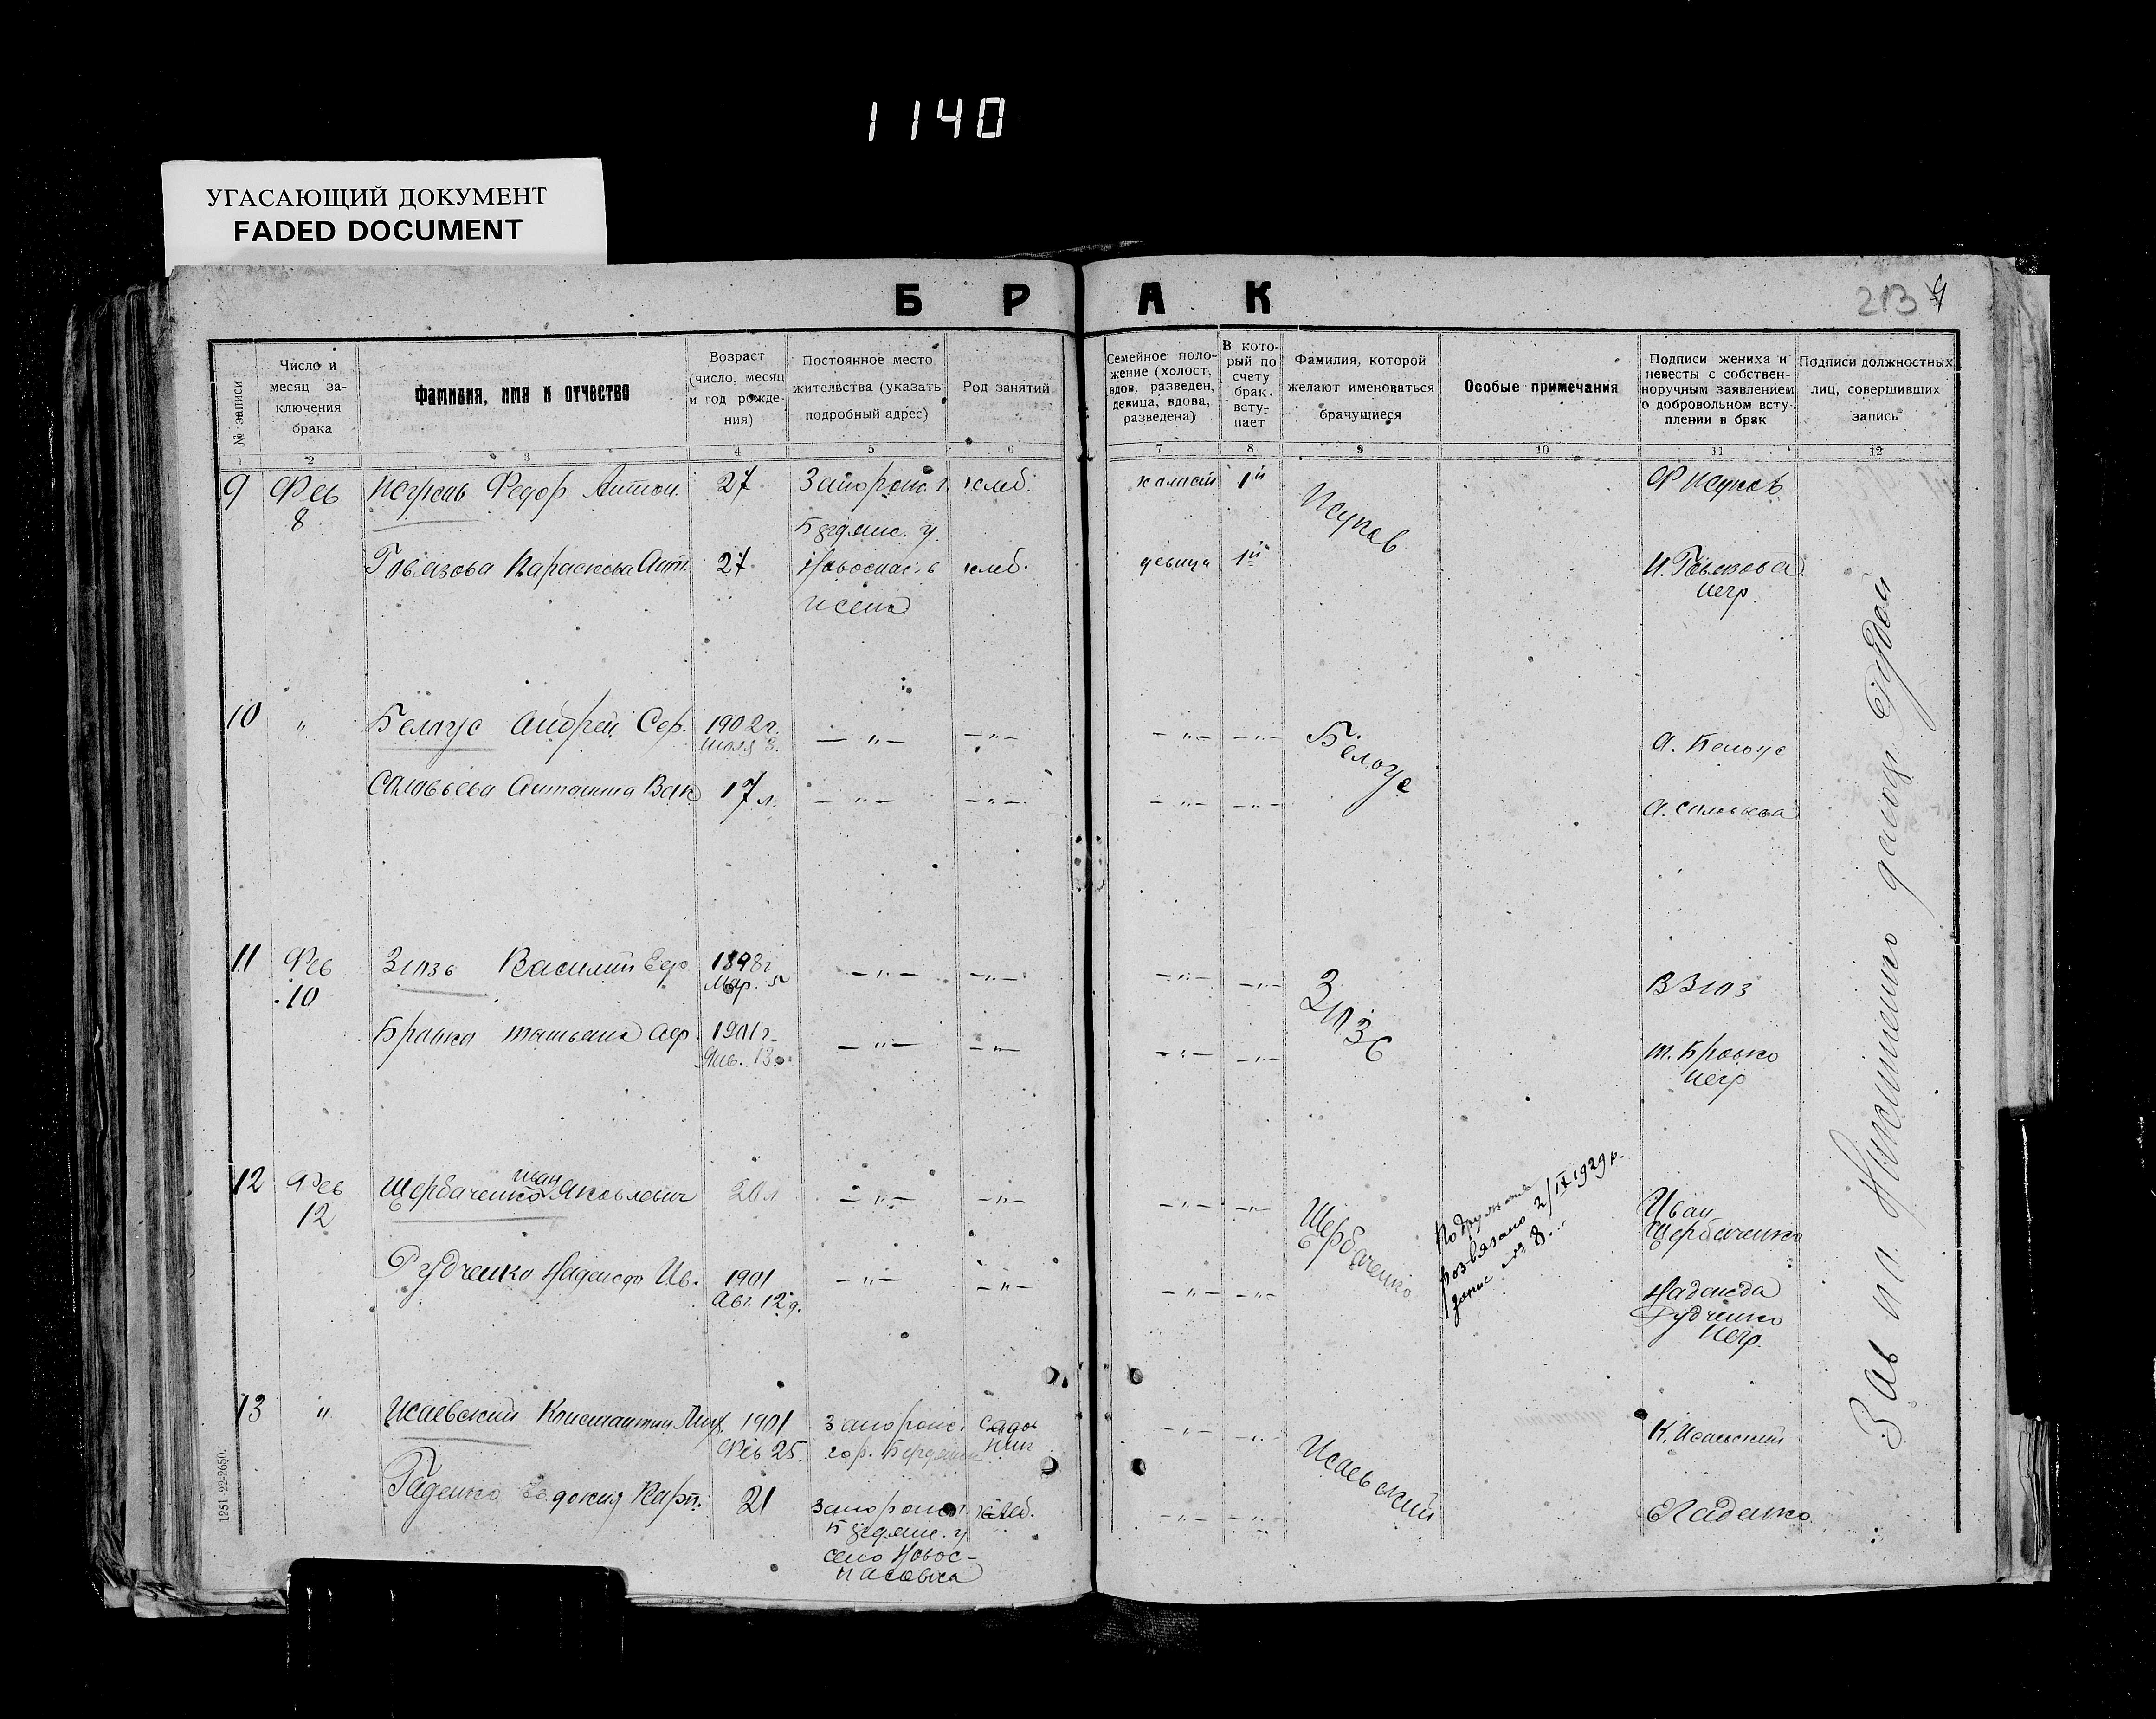 1140
УГАСАЮЩИЙ ДОКУМЕНТ
FADED DOCUMENT
Б Р А К
213
№ записи
Число и месяц заключения брака
Фамилия, имя и отчество
Возраст (число, месяц и год рождения)
Постоянное место жительства (указать подробный адрес)
Род занятий
Семейное положение (холост, вдов, разведен, девица, вдова, разведена)
В который по счету брак вступает
Фамилия, которой желают именоваться брачущиеся
Особые примечания
Подписи жениха и невесты с собственноручным заявлением о добровольном вступлении в брак
Подписи должностных лиц, совершивших запись
1 2 3 4 5 6 7 8 9 10 11 12
9 Фев Федор Антон. 27 Запорож. г. хлеб. 1й Ф Исупов
8 Бердянс. у. Исупов
Параскева Ант. 27 хлеб. девица 1й
негр.
10 " Белоус Андрей Сер. 1902г. — " — — " — — " — — " — Белоус А. Белоус
Соловьева Антонина 17 л. — " — — " — — " — — " — А. Соловьева
11 Фев Василий 1898г — " — — " — — " — — " —
10 Мар. 5
Татьяна 1901г. — " — — " — — " — — " — Т. Бровко
Янв. 13 негр
12 Фев Щербаченко Иван Яковлевич 20 л — " — — " — — " — — " — Щербаченко Иван
12 Щербаченко
розвязано 2/IX 1929 р.
№ 8.
Рудченко Надежда Ив. 1901 — " — — " — — " — — " — Надежда
Авг. 12 д. Рудченко
негр.
13 " Исаевский Константин 1901 Запорож. садовник — " — — " — Исаевский К. Исаевский
Фев 25. гор. Бердянск
Гаденко Евдокия Карп. 21 Запорож. г. хлеб. — " — — " — Е Гаденко
Бердянс. у
село Новос-
пасовка
Зав п.
1251-22-2650.